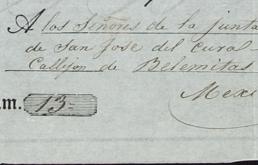 A los Señores de la junta
de San Jose del Cural
Callejon de Belemitas
Mexi
um. 13